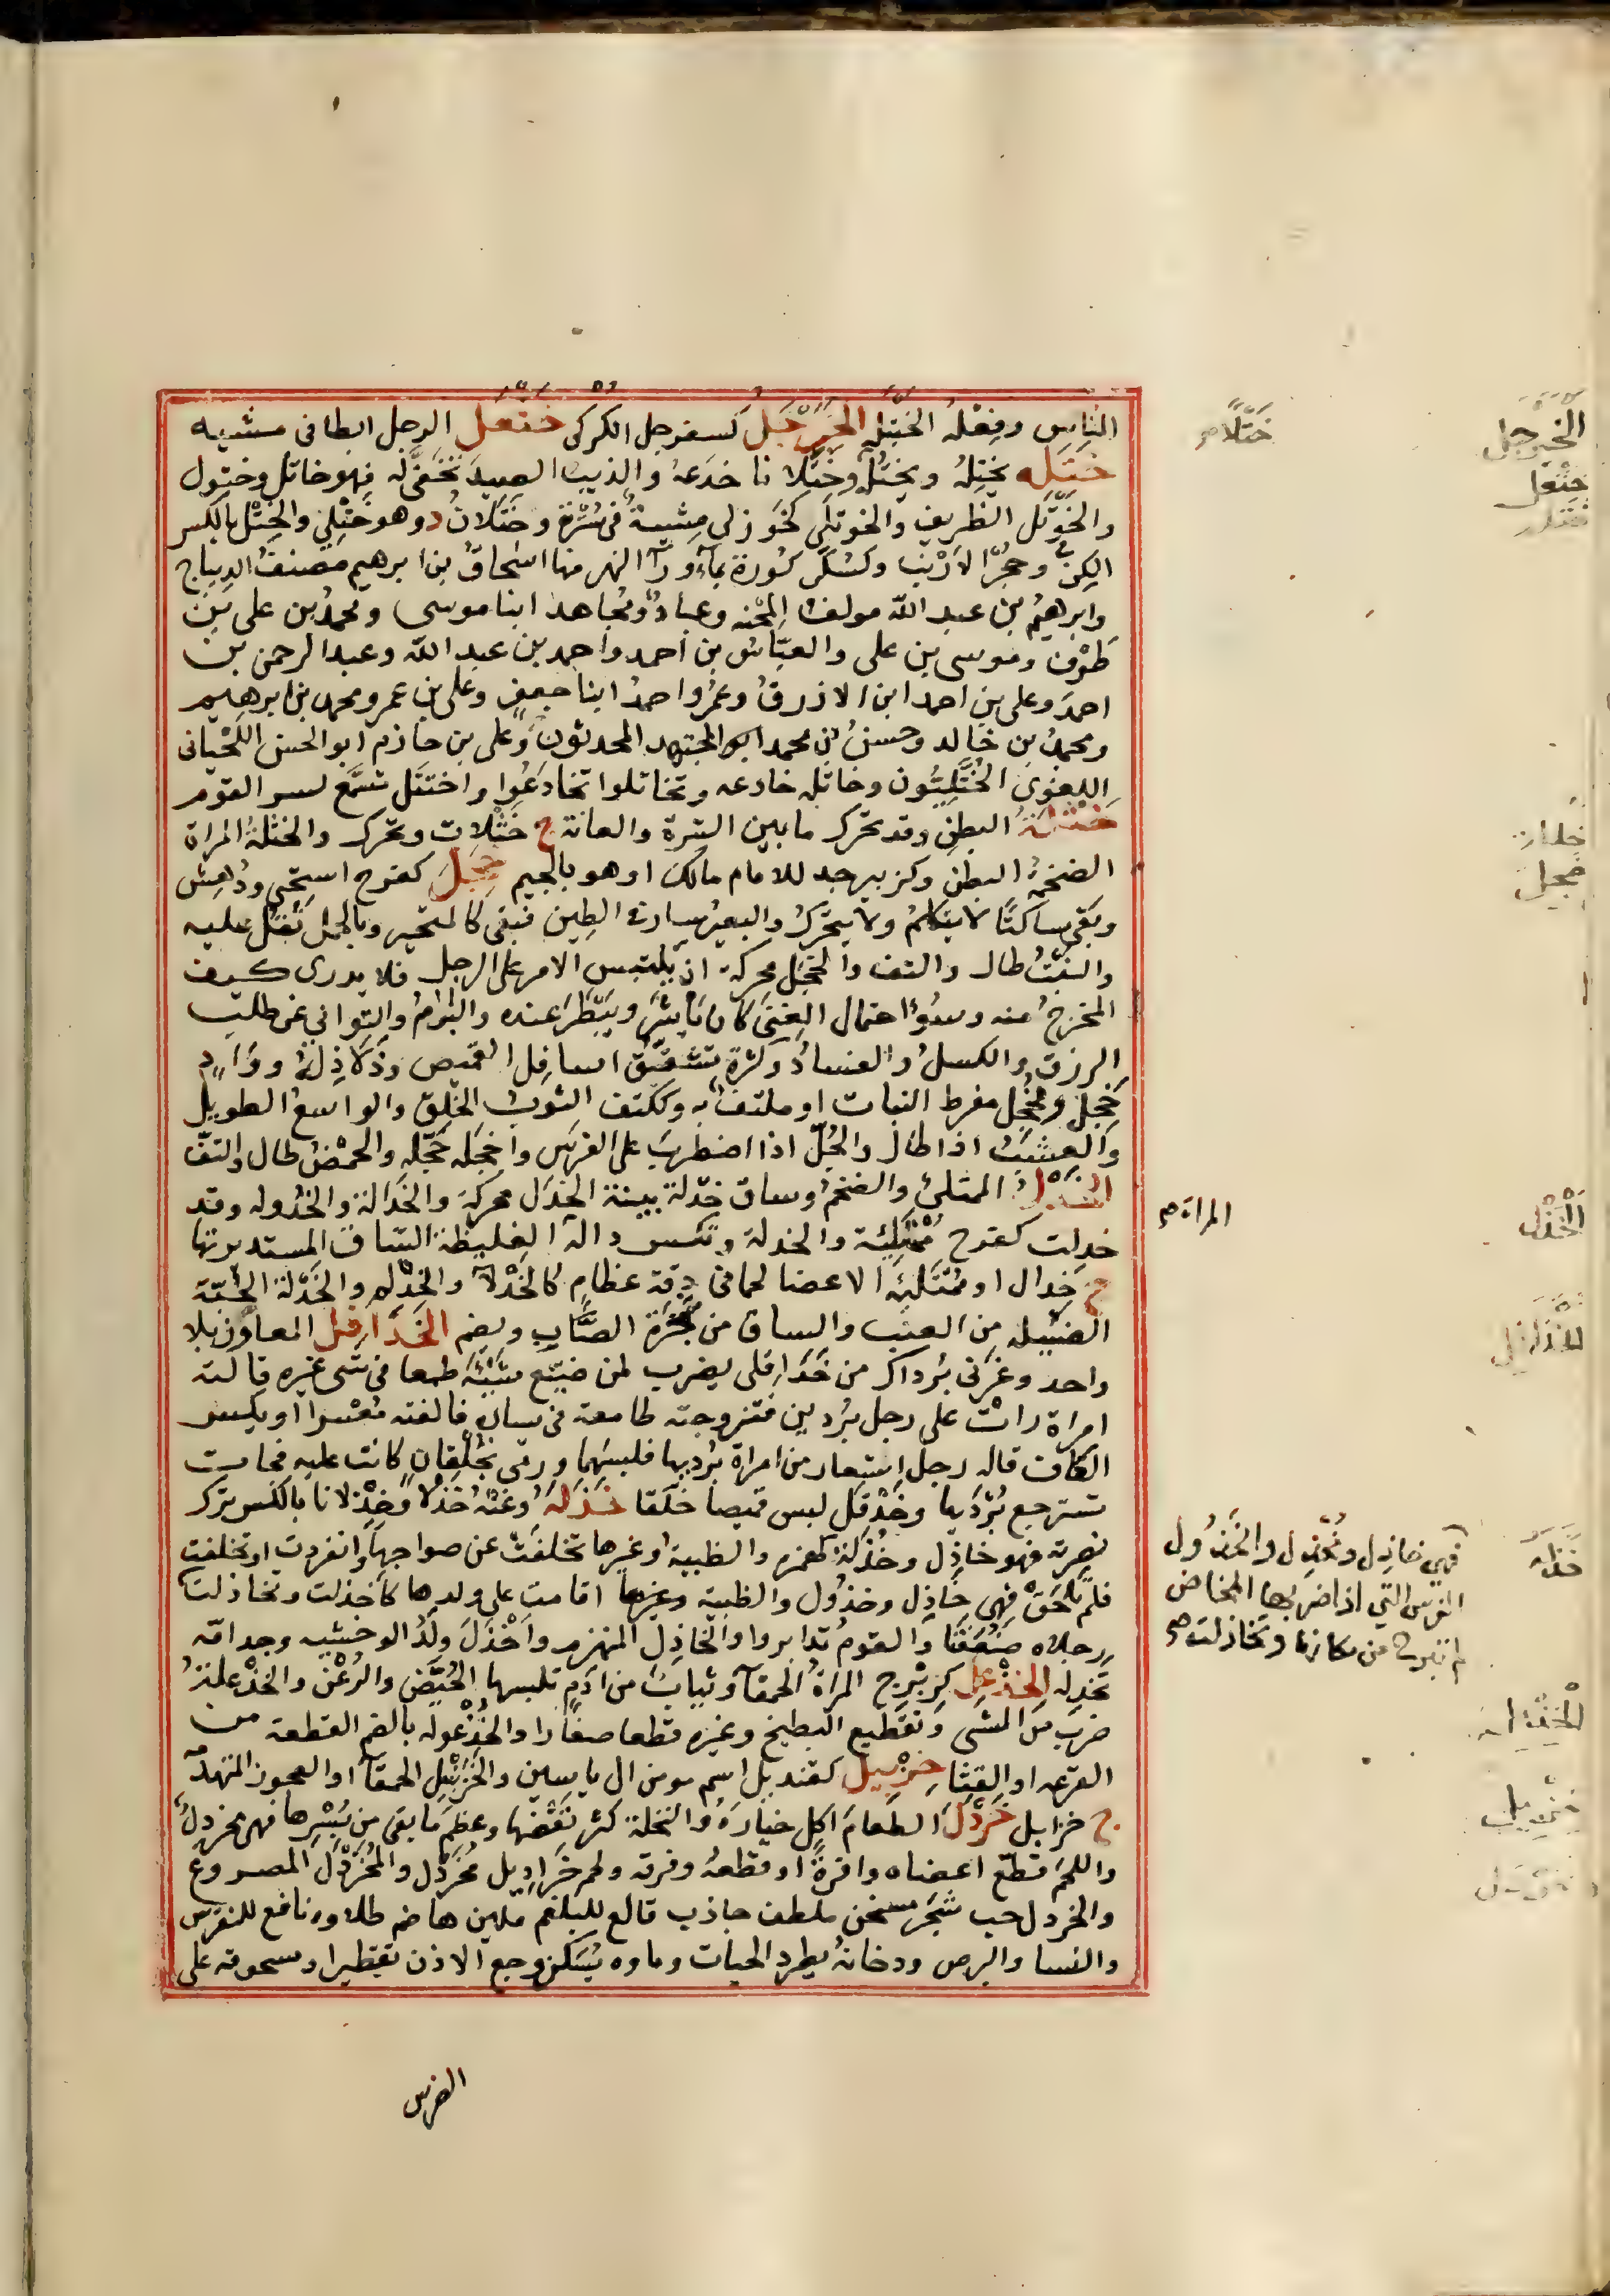 الناس وفعله الخبتلة الخَبَرْجَلُ كسفرجل الكركى ختعل الرجل ابطا فى مشيه
ختله يختِلُه ويختُلُه وختلانا خدعه والذيب الصيد تخفّى له فهو خاتل وختول
والخَوْتَل الظريف والخوتلى كخوزلى مشيةٌ فى سُتْرَة وختلان د وهو خَتْلِى والخِتْل بالكسر
الكِنّ وجُحْر الارنب وكسُكّر كورة بما ورآ النهر منها اسحاق بن ابرهيم مصنف الديباج
وابرهيمُ بن عبد الله مولف المحنه وعبادٌ ومجاهد ابنا موسى ومحمدُ بن على بن
طَوْق وموسى بن على والعبّاس بن احمد واحمد بن عبد الله وعبد الرحمن بن
احمد وعلى بن احمد ابن الازرق وعمر واحمد ابنا جعفر وعلى بن عمر ومحمد بن ابرهيم
ومحمد بن خالد وحسن بن محمد ابو المجتهد المحدثون وعلى بن حازم ابو الحسن اللحْيانى
اللغوى الخُتَّلِيُّون وخاتله خادعه وتخاتلوا تخادعُوا واختتل تسَمَّع لسر القوم
خَثْلَةُ البطن وقد تحرّك ما بين السّرة والعانة ج خَثْلات وتحرك والخثلة المراة
الضخمة البطن وكزبير جد للامام مالك او هو بالجيم خَجِلَ كفرح استحْيى ودَهِش
وبقى ساكتًا لا يتكلم ولا يتحرّك والبعيرُ سار فى الطين فبقى كالمتحير وبالحمل ثقُل عليه
والنبْتُ طال والتف والخجَل محركة ان يلتبس الامر على الرجل فلا يدرى كيف
المخرجُ منه وسُوُ احتمال الغنى كان يأشَر ويبْطَر عنده والبَرَمُ والتوانى عن طلب
الرزق والكسلُ والفسادُ وكثرة تشقّق اسافل القميص وذَلاذِلُه وواد
خَجِل ومُخْجِل مفرط النبات او ملتف به وككتف الثوبُ الخَلِق والواسع الطويل
والعشبُ اذا طال والجُلّ اذا اضطرب على الفرس واخجله خجّله والحمضُ طال والتفّ
الخَدْلُ الممتلئ والضخمُ وساق خدْلة بينة الخدَل محركة والخَدالة والخُدوله وقد
خدلت كفرح مُمْتَلِئة والخدلة وتكسر داله الغليظة السّاق المستديرتها
ج خِدال او مُمْتَلِئة الاعضا لحما فى دقة عظام كالخَدْلآ والخِدْلِم والخَدْلة الحَبّة
الضئيلة من العنب والساق من شجرة الصّاب ويضم الخَدَارفل المعاوز بلا
واحد وغرنى بُرداك من خَدَافلى يضرب لمن ضيّع شَيْئَه طمعا فى شى غيره قالته
امراة رات على رجل بُردين فتزوجته طامعة فى يساره فالفته مُعْسرا او بكسر
الكاف قاله رجل استعار من امراة بُرديها فلبسهما ورمى بخُلْقانٍ كانت عليه فجات
تسترجع بُرْدَيها وخَدْفَل لبس قميصا خلَقا خَذَلَهُ وعَنْهُ خذلا وخذلانا بالكسر ترك
نصرته فهو خاذِل وخُذَلة كهمزه والظبية وغيرها تخلفت عن صواحبها وانفردت او تخلفت
فلم تلحق فهى خاذِل وخذُول والظبية وغيرها اقامت على ولدها كاخذلت وتخاذلت
رجلاه ضعفتا والقوم تدابروا والخاذل المنهزم واَخْذَلَ ولَدُ الوحشيه وجد امّه
تخذله الخِذْعِل كزِبْرِج المراةُ الحمقآ وثيابٌ من ادم تلبسها الحُيَّض والرُعْن والخَذْعَلة
ضرب من المشى وتقطيع البطيخ وغيره قطعا صغارا والخُذْعوله بالضم القطعة من
القرعه او القثا خِرْبيل كقنديل اسم مومن ال ياسين والخِرْبيل الحمقآ او العجوز المتهدّمة
ج خرابل خَرْدَلَ الطعام اكل خيارَهُ والنخلة كثر نَفَضُها وعظم ما بقى من بُسْرها فهى مخردِلٌ
واللحم قطّع اعضاه وافرةً او قطعهُ وفرقه ولحم خَرادِيل مُخَردَل والمُخَرْدَل المصروع
والخردل حب شجر مسخن ملطف جاذب قالع للبلغم ملين هاضم طلاوه نافع للنقرس
والنسا والبرص ودخانهُ يطرد الحيات وماوه يُسَكّن وجع الاذن تقطيرا ومسحوقه على
الضرس
خَتْلًا صح
المراة صح
فهى خاذِل ومُخْذِل والخَذُول
الفرس التى اذا ضربها المخاض
لم تبرح من مكانها وتخاذلت صح
الخَبَرْجل
خَتْعَل
الخَدْل
خذله